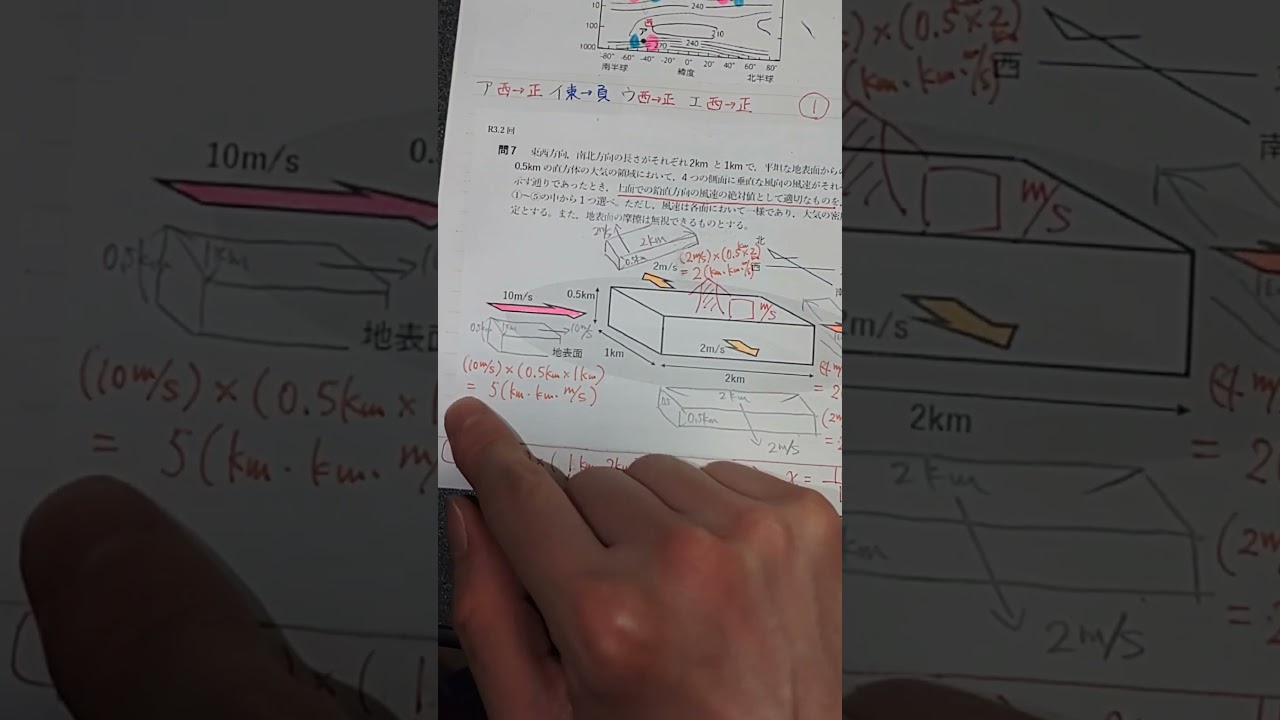 10
240
100
西
ア
210
1000
270
240
-80° -60° -40° -20° 0° 20° 40° 60° 80°
南半球 緯度 北半球
ア 西→正 イ東→負 ウ西→正 エ 西→正 ①
R3.2回
問7 東西方向,南北方向の長さがそれぞれ2kmと1kmで,平坦な地表面からの
0.5kmの直方体の大気の領域において,4つの側面に垂直な風向の風速がそれ
示す通りであったとき,上面での鉛直方向の風速の絶対値として適切なものを,
①~⑤の中から1つ選べ。ただし,風速は各面において一様であり,大気の密
定とする。また,地表面の摩擦は無視できるものとする。
2m/s 2km 0.5km
(2m/s)×(0.5km×2
= 2(km・km・m/s)
北
西
南
2m/s
10m/s
0.5km
m/s
0.5km 1km 10m/s
地表面
1km
2m/s
2km
(10m/s)×(0.5km×1km)
= 5(km・km・m/s)
2km
0.5km
2m/s
×(1km 2km
x =